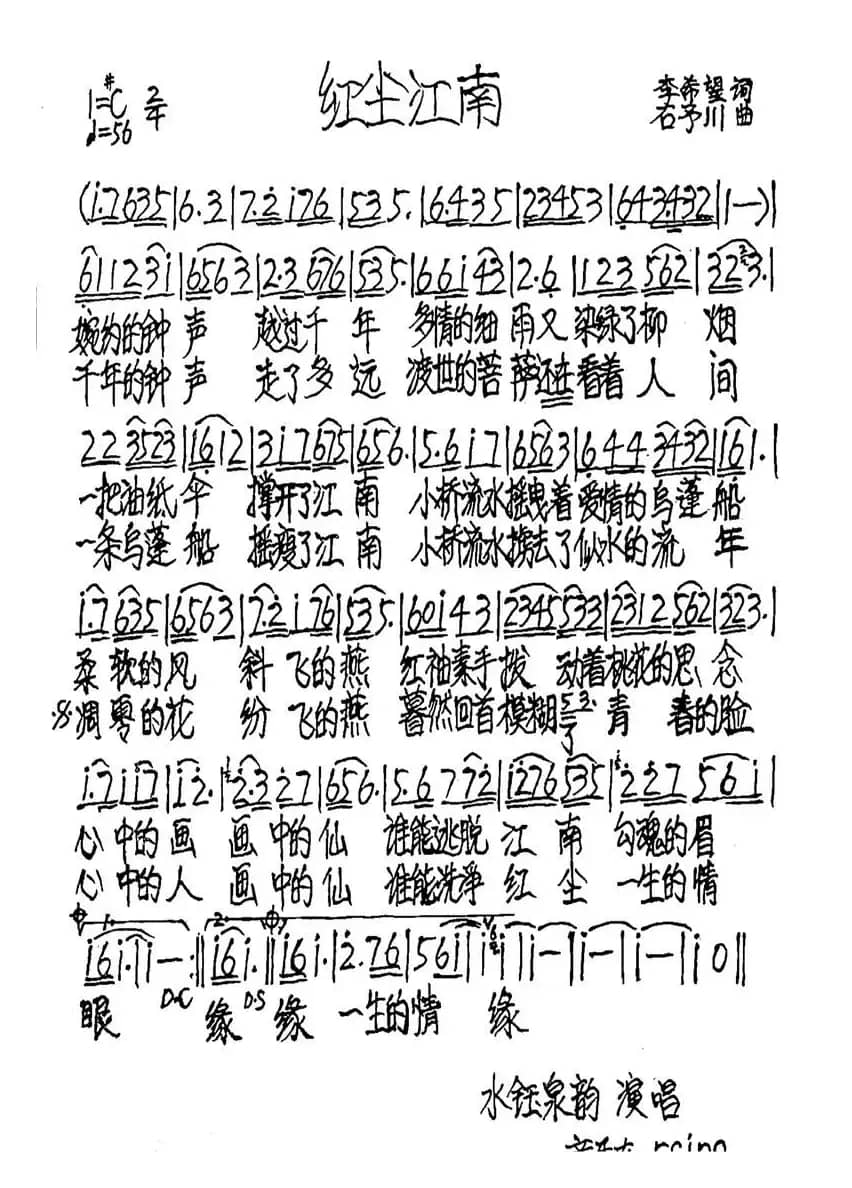 红尘江南
1=#C 2/4
♩=56
李希望 词
石予川 曲
(i·7635|6·3|7·2i76|535·|6·435|23453|643432|1—)|
611231|6563|2·3676|535·|66i43|2·6|123562|323·|
婉约的钟声 越过千年 多情的细雨又染绿了柳烟
千年的钟声 走了多远 渡世的菩萨还在看着人间
223523|1612|3i7675|656·|5·6i7|6563|6443432|161·|
一把油纸伞 撑开了江南 小桥流水摇曳着爱情的乌蓬船
一条乌蓬船 摇瘦了江南 小桥流水掳去了似水的流年
i·7635|6563|7·2i76|535·|60i43|2345533|2312562|323·|
柔软的风 斜飞的燕 红袖素手拨动着桃花的思念
凋零的花 纷飞的燕 蓦然回首模糊了青春的脸
i·7ii7|i2·|2·327|656·|5·6772|i276535|2·2756i|
心中的画 画中的仙 谁能逃脱江南 勾魂的眉
心中的人 画中的仙 谁能洗净红尘 一生的情
1. 2.
i6i·|i—:‖i6i·‖i6i·|2·76|56i|ii|i—|i—|i—|i0‖
D.C D.S
眼 缘 缘 一生的情 缘
水钰泉韵 演唱